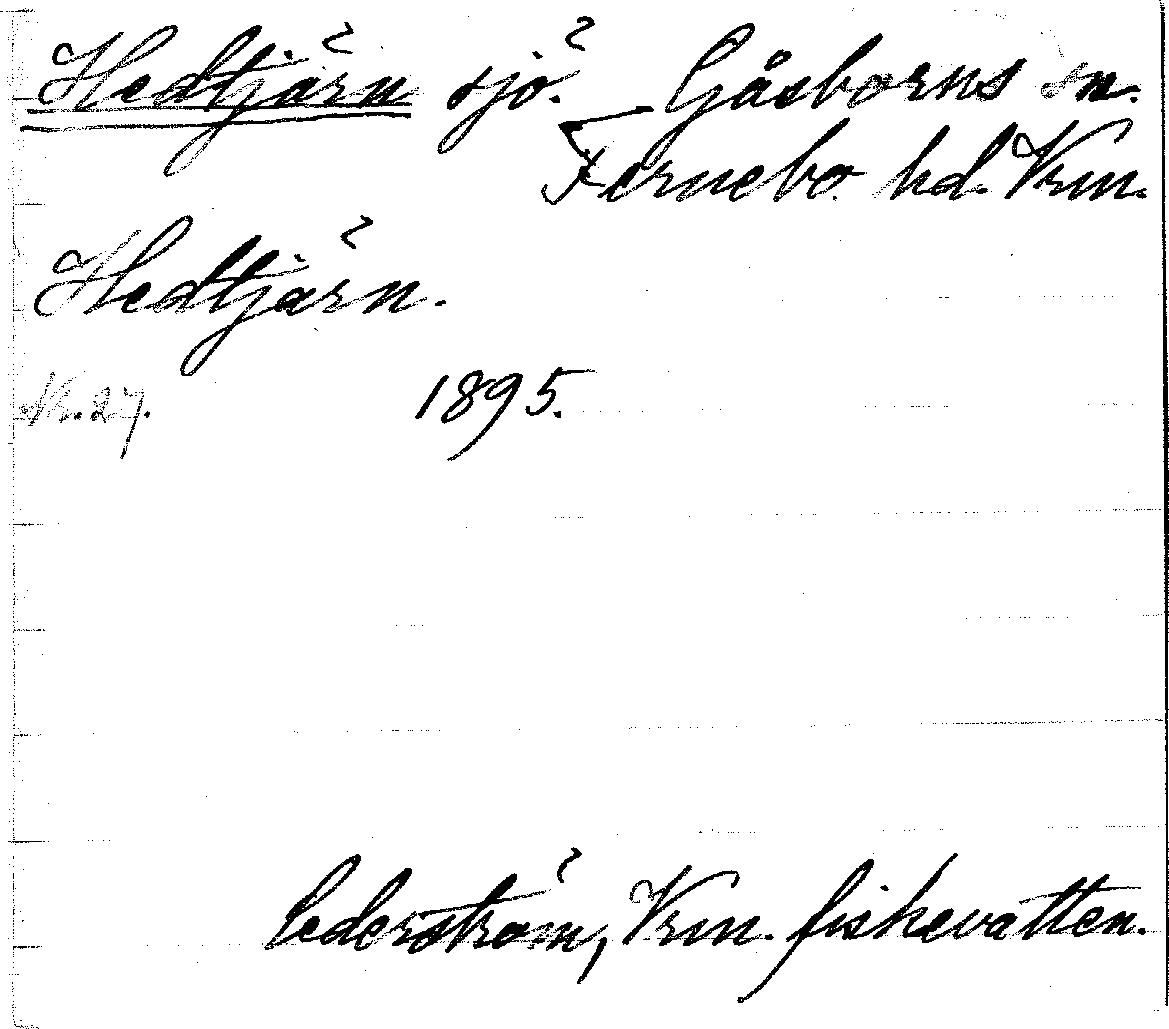 Hedtjärn sjö. Gåsborns sn.
Fernebo hd. Vrm.
Hedtjärn.
Nr. 27. 1895.
Cederström, Vrm. fiskevatten.